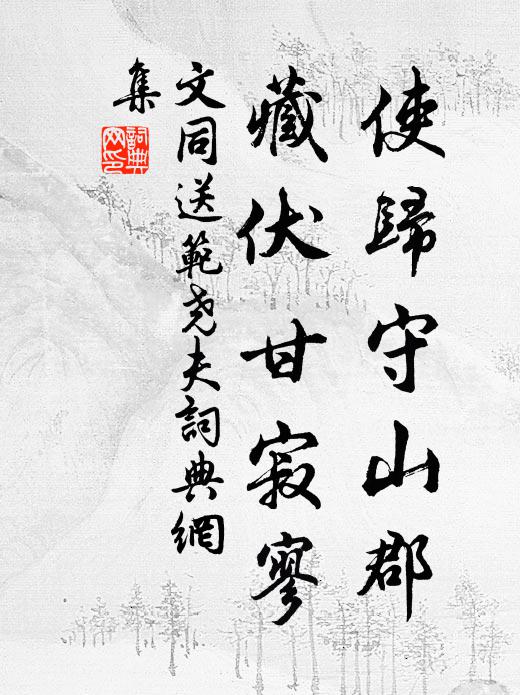 使歸守山郡
藏伏甘寂寥
文同送範堯夫詞典網
集
詞典網印